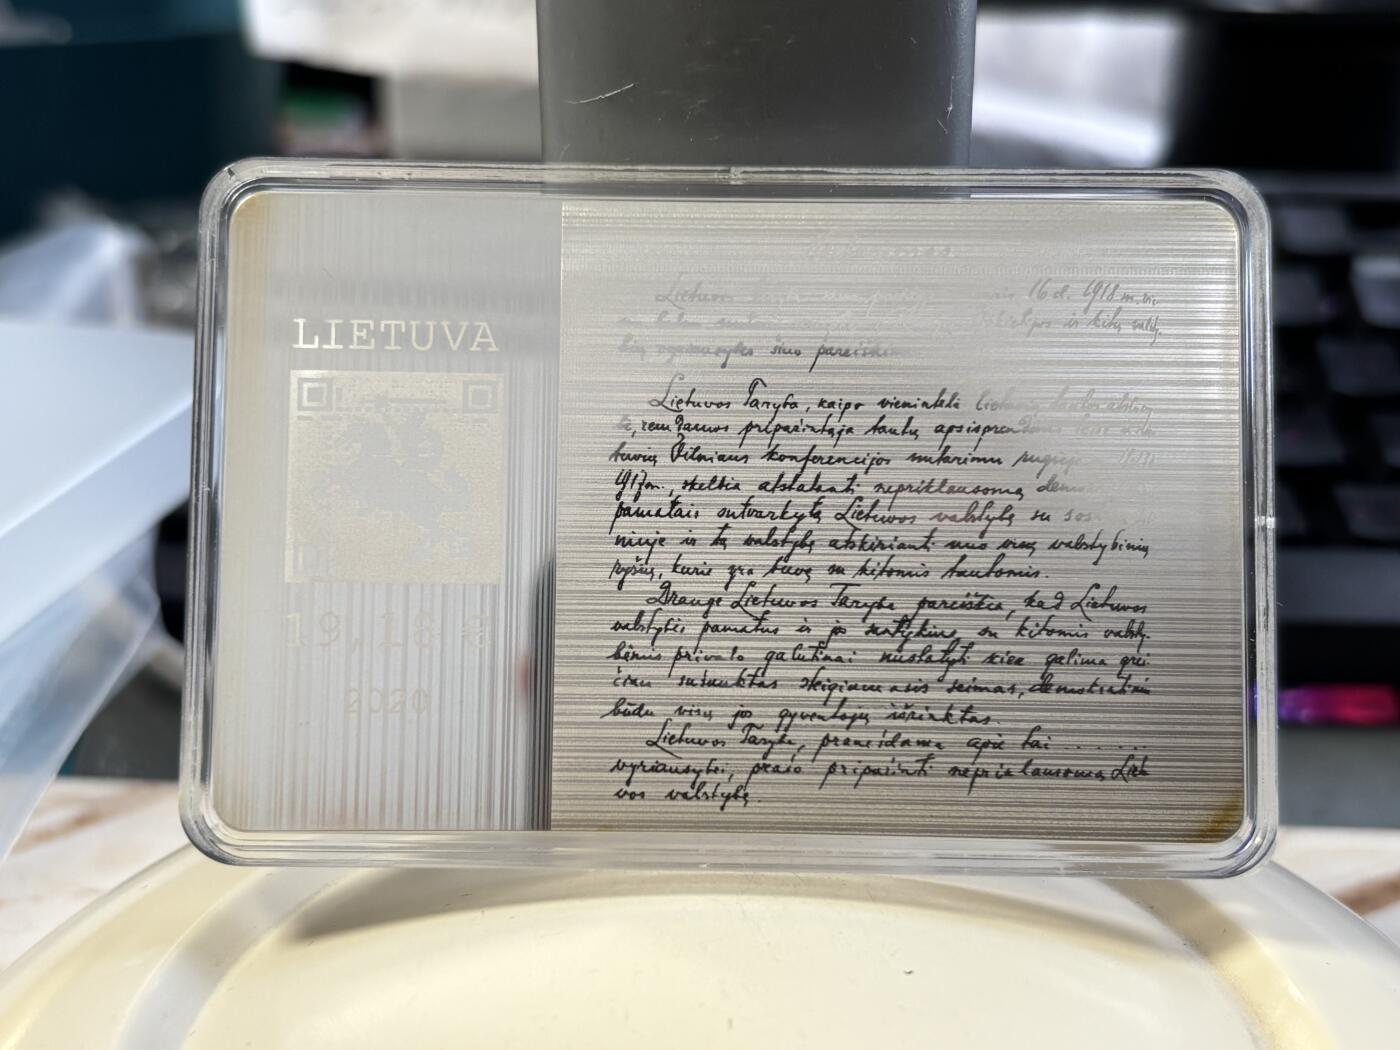 LIETUVA
19,18 €
2020
Lietuvos 16 d. 1918 m. vi-
ir kitų valsty-
šiuo pareiškimu
Lietuvos Taryba, kaipo vienintelė
remdamos pripažintąja tautų apsisprendimo
tuvių Vilniaus konferencijos nutarimu rugsėjo
1917 m., skelbia atstatanti nepriklausomą
pamatais sutvarkytą Lietuvos valstybę su sos
niuje ir tą valstybę atskirianti nuo visų valstybinių
ryšių, kurie yra buvę su kitomis tautomis.
Drauge Lietuvos Taryba pareiškia, kad Lietuvos
valstybės pamatus ir jos santykius su kitomis valsty-
bėmis privalo galutinai nustatyti kiek galima grei-
čiau sušauktas steigiamasis seimas, demokratiniu
būdu visų jos gyventojų išrinktas.
Lietuvos Taryba, pranešdama apie tai . . . . . .
vyriausybei, prašo pripažinti nepriklausomą Lietu-
vos valstybę.